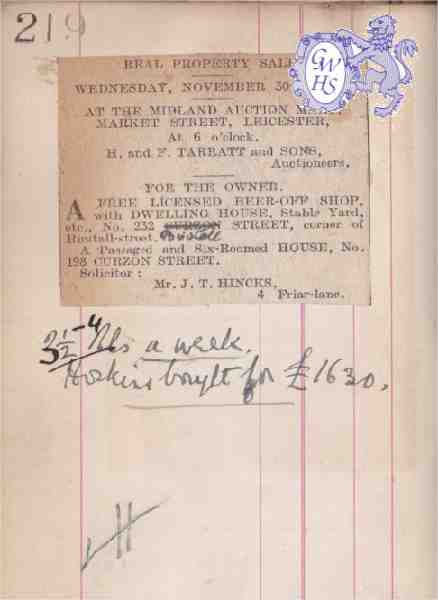 219
REAL PROPERTY SALE
WEDNESDAY, NOVEMBER 30
AT THE MIDLAND AUCTION MART,
MARKET STREET, LEICESTER,
At 6 o'clock.
H. and F. TARRATT and SONS,
Auctioneers.
FOR THE OWNER.
A FREE LICENSED BEER-OFF SHOP,
with DWELLING HOUSE, Stable Yard,
etc., No. 232 CURZON STREET, corner of
street.
A Passaged and Six-Roomed HOUSE, No.
198 CURZON STREET.
Solicitor:
Mr. J. T. HINCKS,
4 Friar-lane.
3½-4 a week.
Hoskins bought for £1630.
H
GWHS